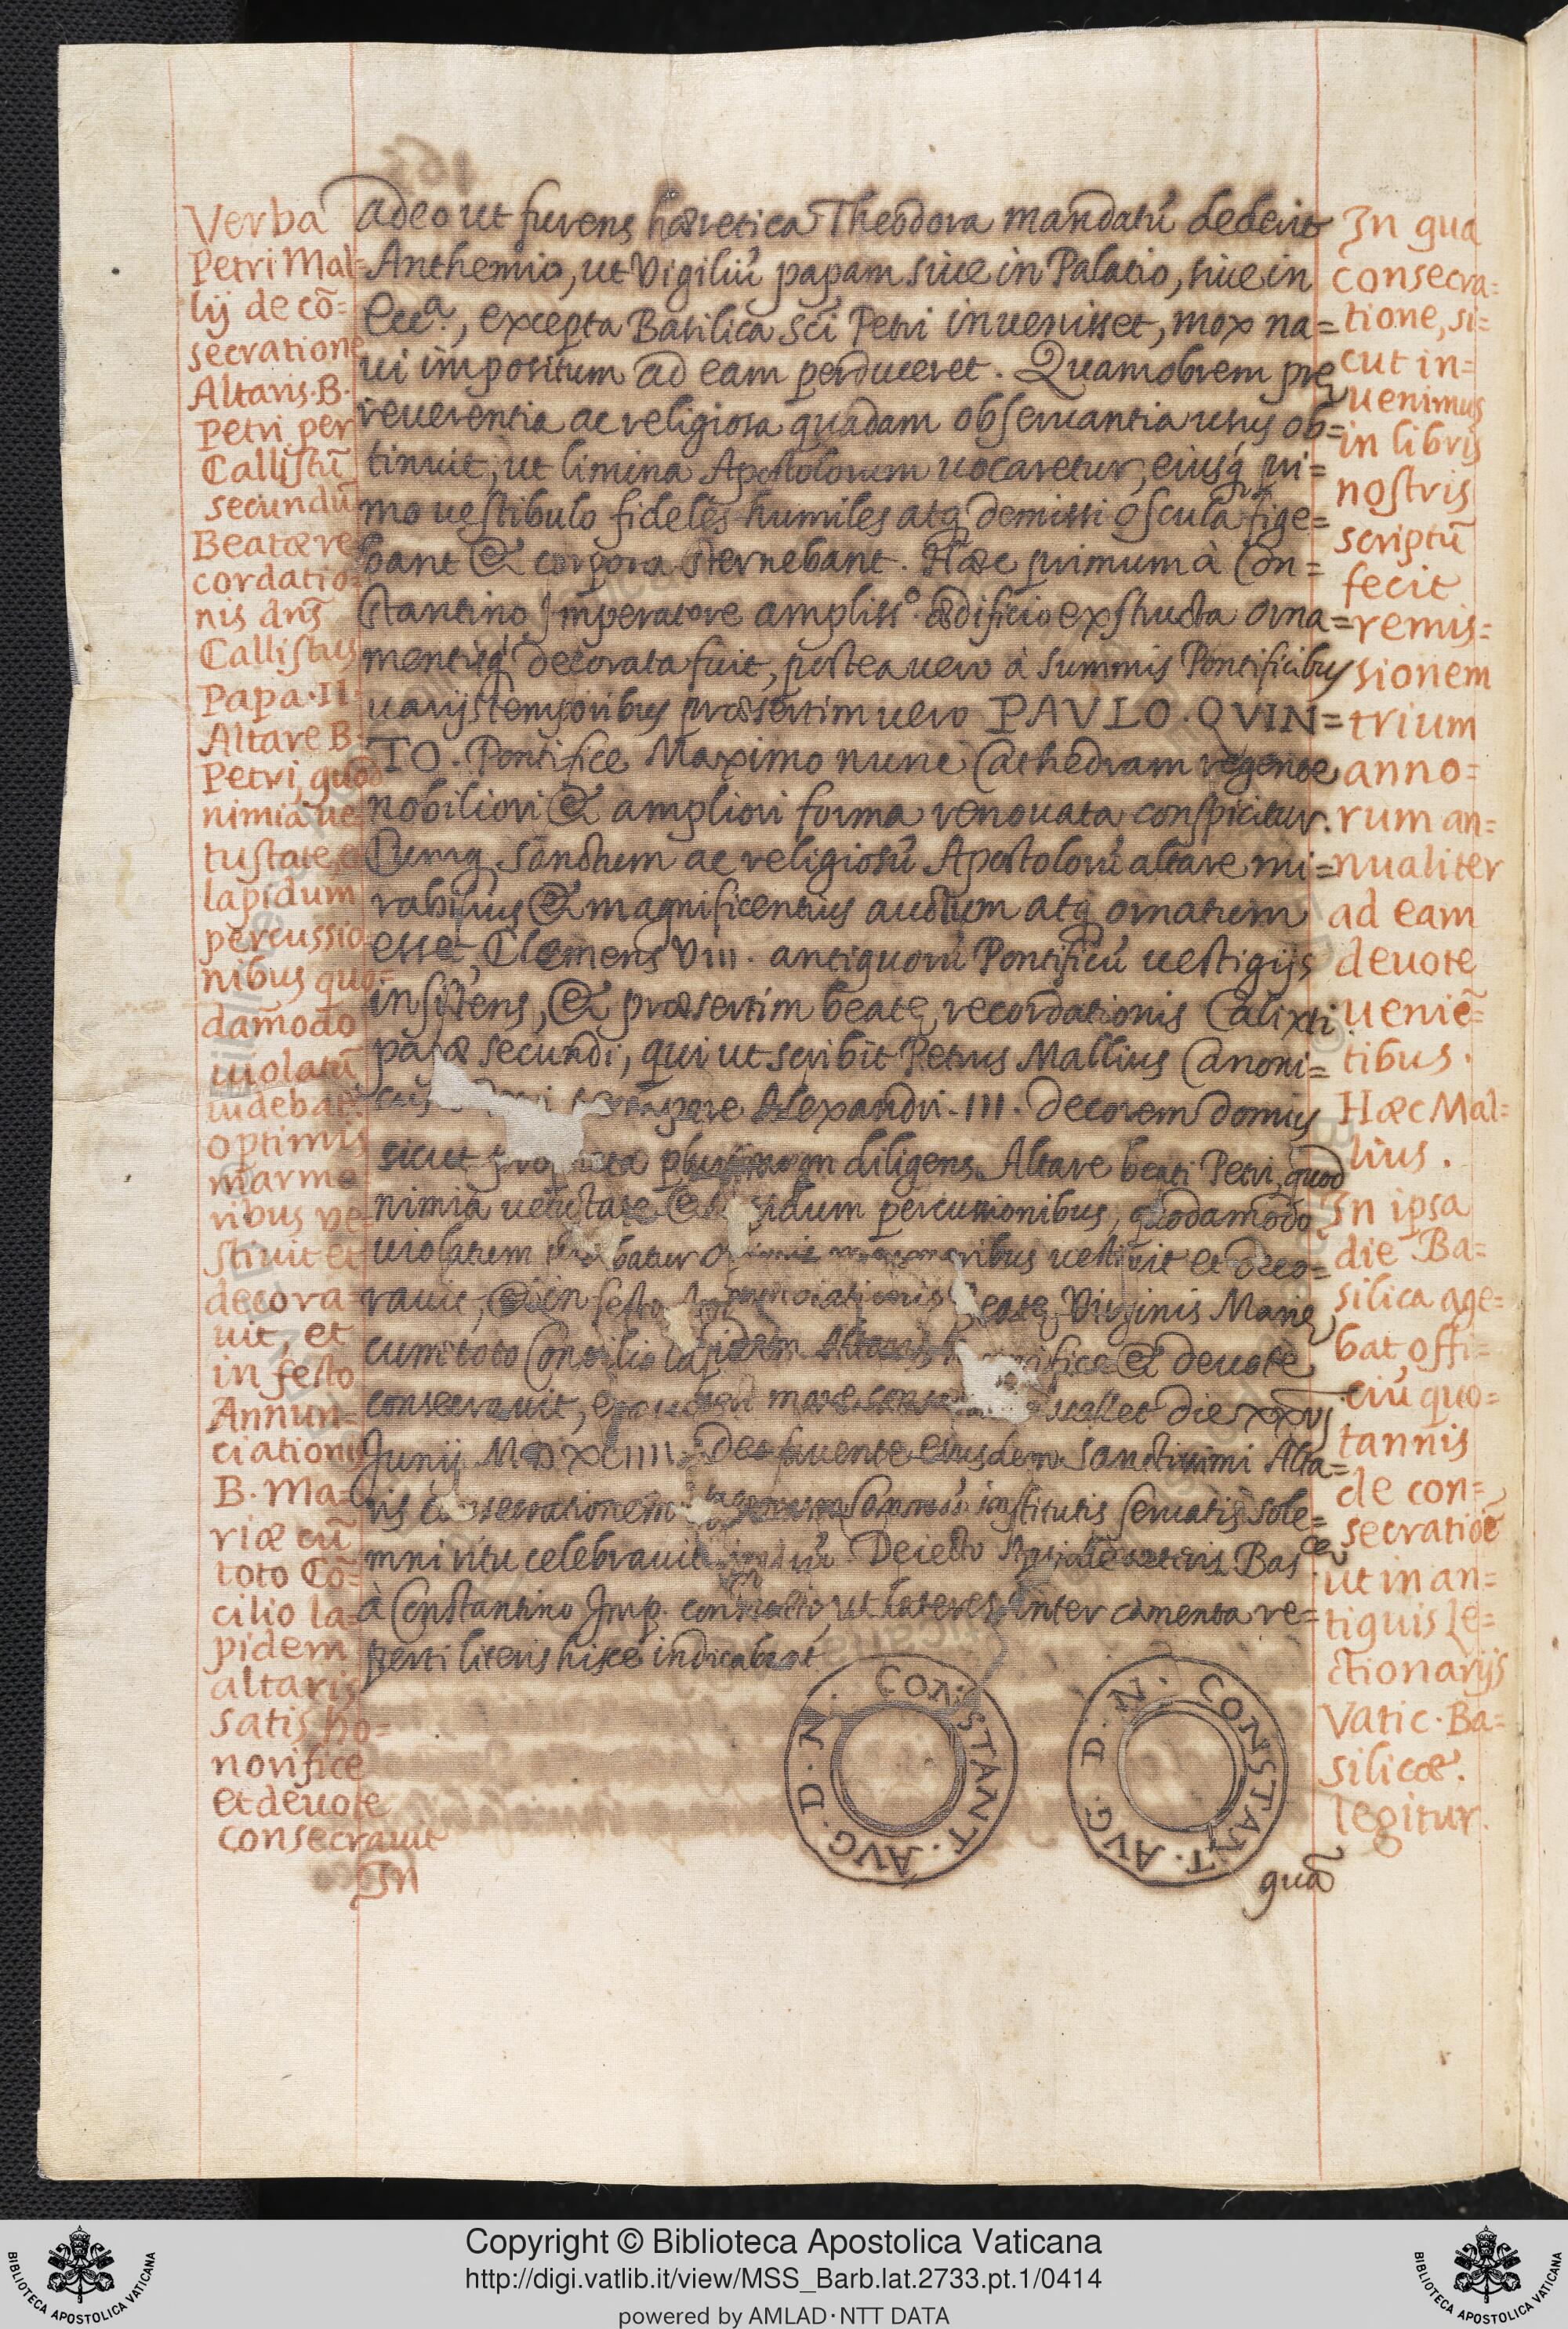 Verba
Petri Mal=
lij de cõ=
secratione
Altaris. B.
Petri per
Callistũ
secundũ
Beatæ re
cordatio=
nis dñs
Callistus
Papa. II
Altare B.
Petri, quod
nimia ue
tustate, et
lapidum
percussio
nibus quo=
dam̃odo
uiolatũ
uidebat.
optimis
marmo
ribus ve=
stiuit et
decora=
uit, et
in festo
Annun=
ciationis
B. Ma=
riæ cũ
toto Cõ=
cilio la=
pidem
altaris
satis ho=
norifice
et deuote
consecrauit
In
adeo ut furens hæretica Theodora mandatũ dederit
Anthemio, ut Vigiliũ papam siue in Palatio, siue in
Eccª., excepta Basilica Sci Petri inuenisset, mox na=
ui impositum ad eam perduceret. Quamobrem pre
reuerentia ac religiosa quadam obseruantia usus ob=
tinuit, ut limina Apostolorum uocaretur, eiusq̃ pri=
mo uestibulo fideles humiles atq̃ demissi oscula fige=
bant & corpora sternebant. Hæc primum à Con=
stantino Imperatore ampliss.º ædificio exstructa orna=
mentisq̃ decorata fuit, postea uero à summis Pontificibus
uarijs temporibus præsertim uero PAVLO. QVIN=
TO. Pontifice Maximo nunc Cathedram regente
nobiliori & ampliori forma renouata conspicitur.
Cumq̃ sanctum ac religiosũ Apostolorũ altare mi=
rabilius & magnificentius auctum atq̃ ornatum
esset, Clemens VIII. antiquorũ Pontificũ uestigijs
insistens, & præsertim beatę recordationis Calixti
papæ secundi, qui ut scribit Petrus Mallius Canoni=
cus tempore Alexandri. III. decorem domus
sicut diligens Altare beati Petri, quod
nimia uetustate & lapidum percussionibus, quodam̃odo
uiolatum batur ribus uestiuit et deco=
rauit, & in festo Beatę Virginis Marię
cum toto Concilio lapidem Altaris & deuote
consecrauit, die XXVI
Junij MDXCIIII. Deo fauente eiusdem Sanctissimi Alta=
ris consecrationem institutis seruatis sole=
mni ritu celebrauit Deiecto ueteris Bas.cę
à Constantino Imp. constructo, ut lateres inter cæmenta re=
perti literis hisce indicabant
D. N. CONSTANT. AVG.
D. N. CONSTANT. AVG.
quã
In qua
consecra=
tione, si=
cut in=
uenimus
in libris
nostris
scriptũ
fecit
remis=
sionem
trium
anno=
rum an=
nualiter
ad eam
deuote
ueniẽ=
tibus.
Hæc Mal=
lius.
In ipsa
die Ba=
silica age=
bat offi=
ciũ quo=
tannis
de con=
secratiõe
ut in an=
tiquis Le=
ctionarijs
Vatic. Ba=
silicæ.
legitur.
Copyright © Biblioteca Apostolica Vaticana
http://digi.vatlib.it/view/MSS_Barb.lat.2733.pt.1/0414
powered by AMLAD·NTT DATA
BIBLIOTECA APOSTOLICA VATICANA
BIBLIOTECA APOSTOLICA VATICANA